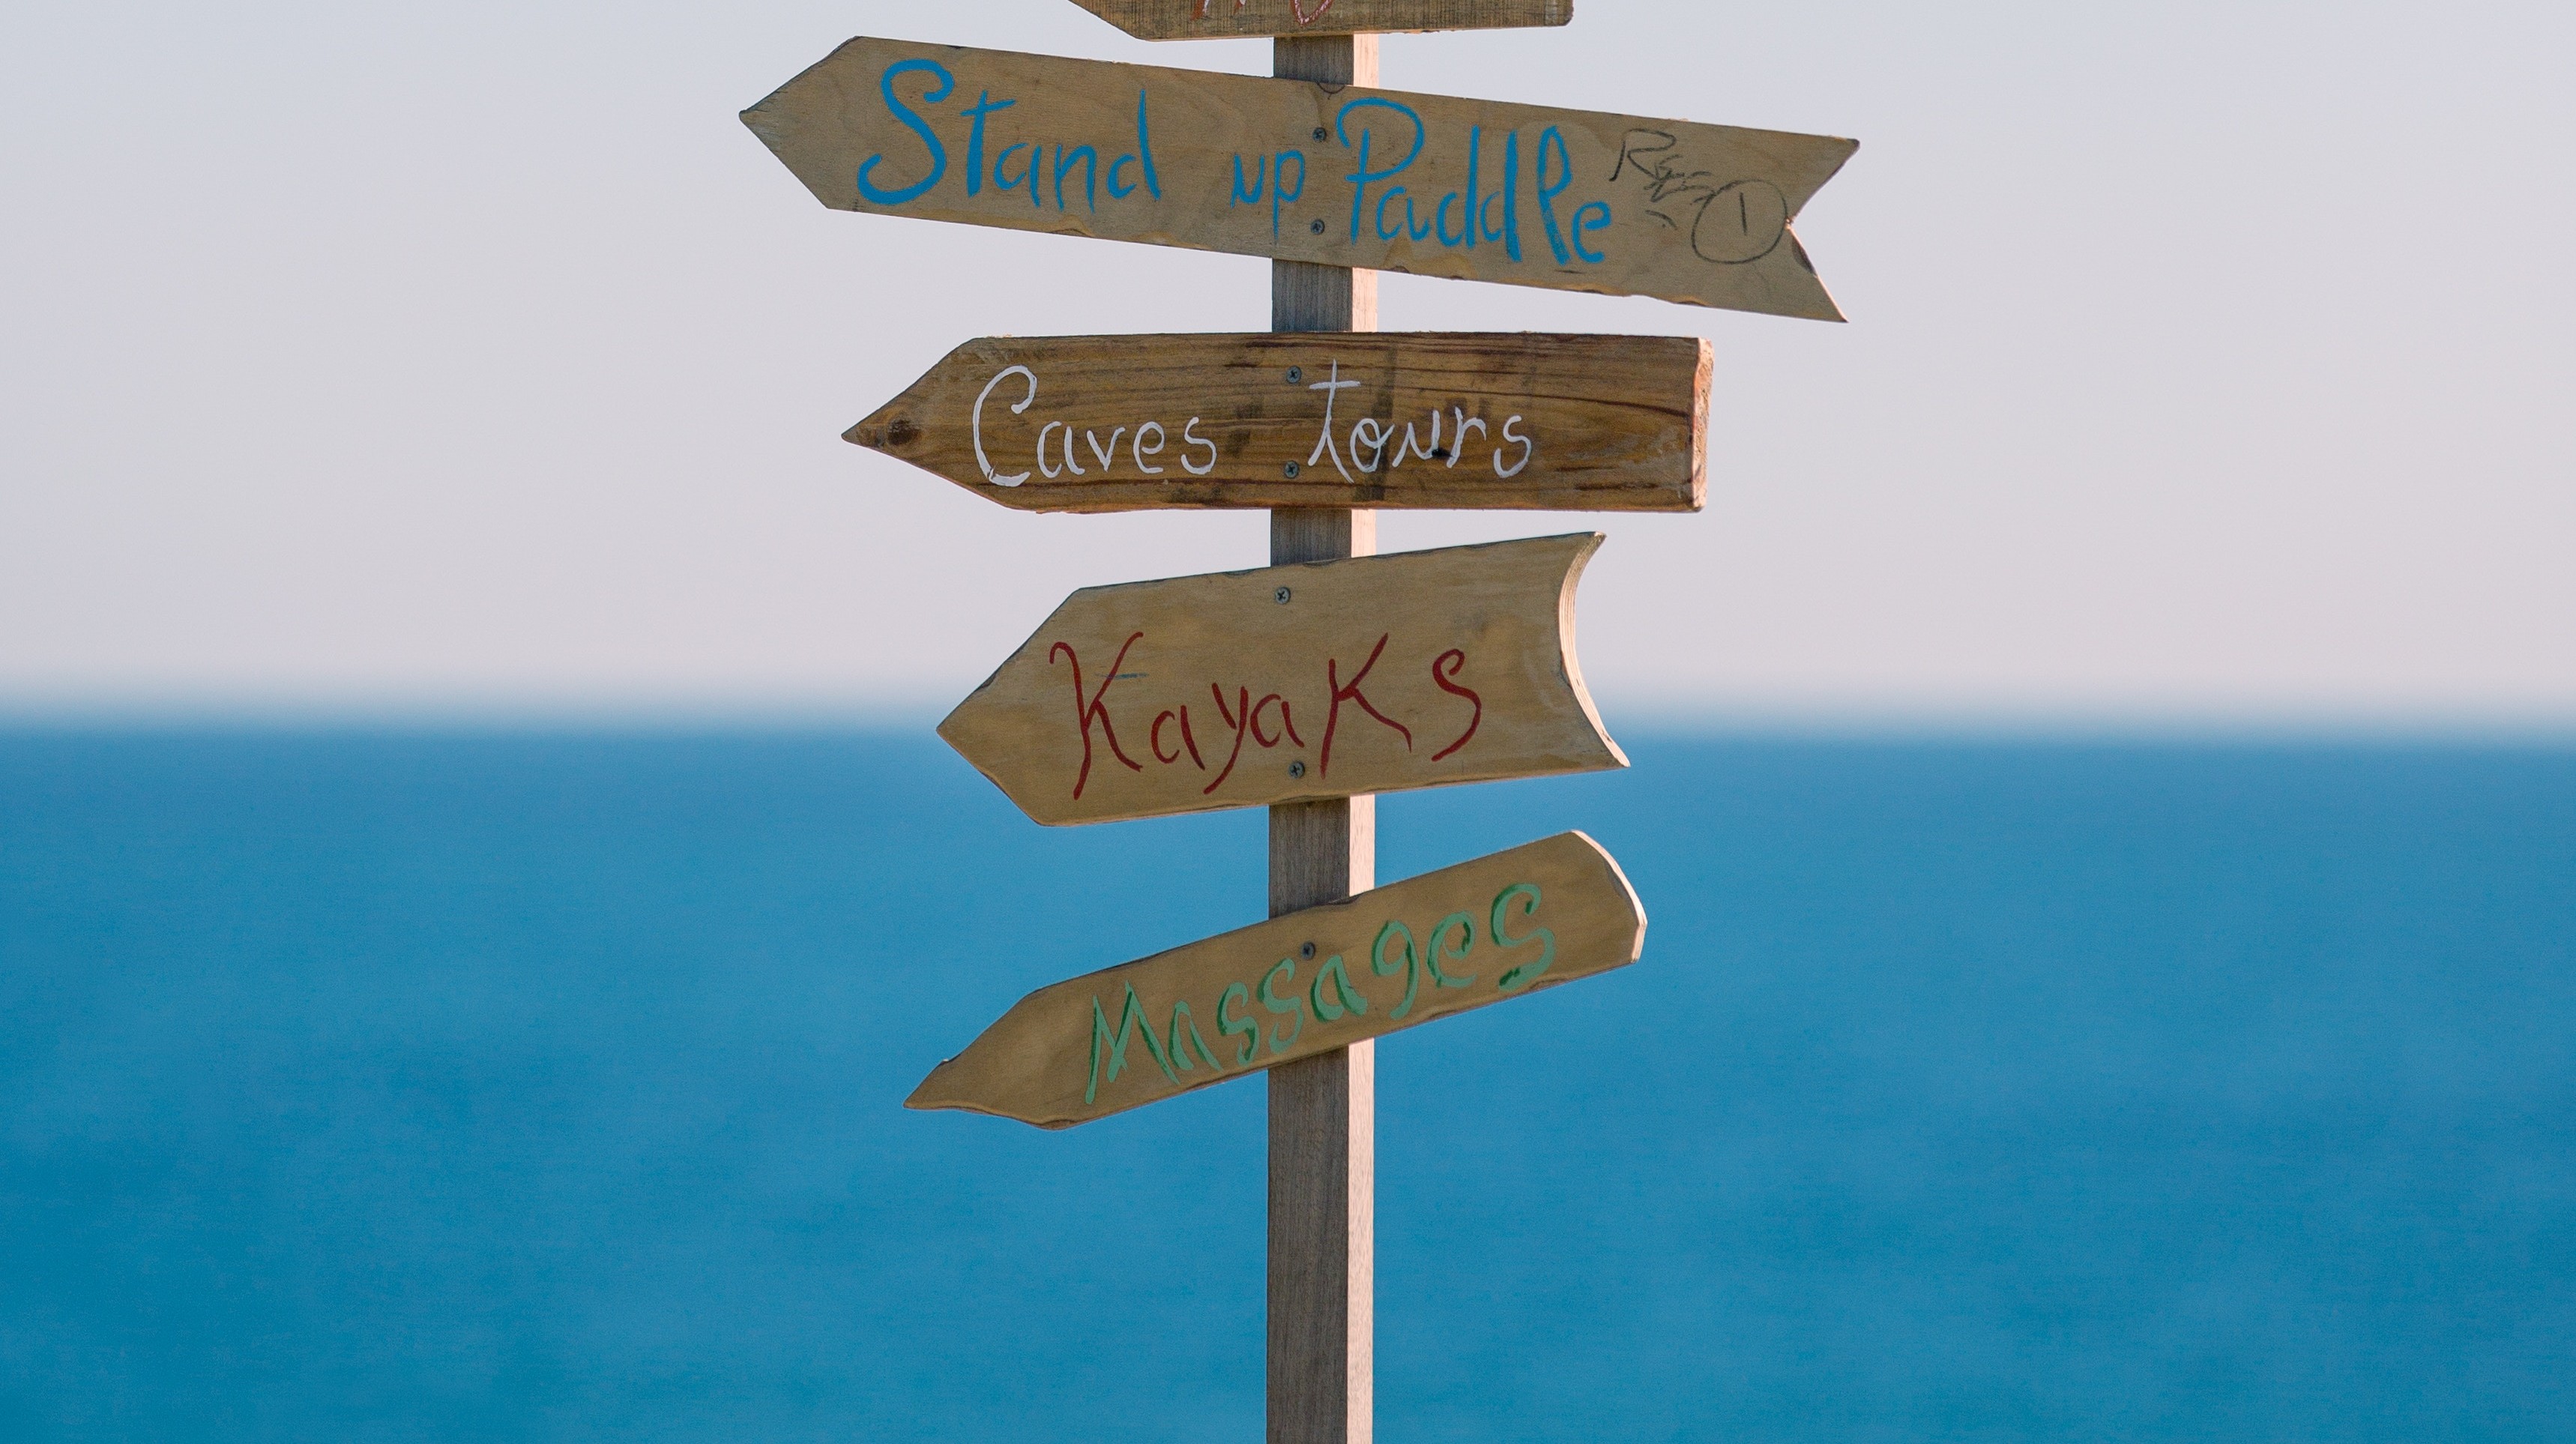 Stand up Paddle
Caves tours
Kayaks
Massages